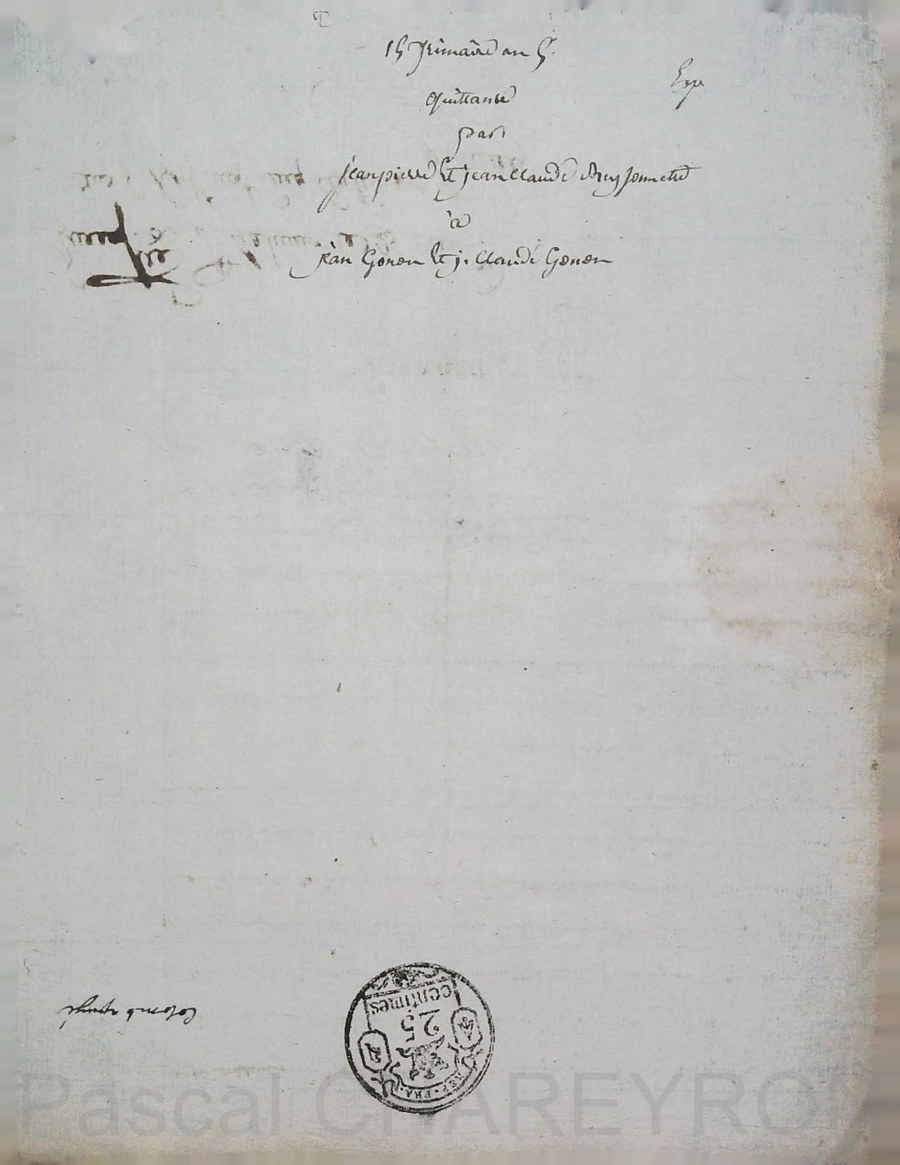 15 frimaire an 5.
Exp
quittance
par
jean pierre Et jean Claude
à
jean Gonon Et j. Claude Gonon
Colomb
centimes
25
REP. FRA.
Pascal CHAREYRO